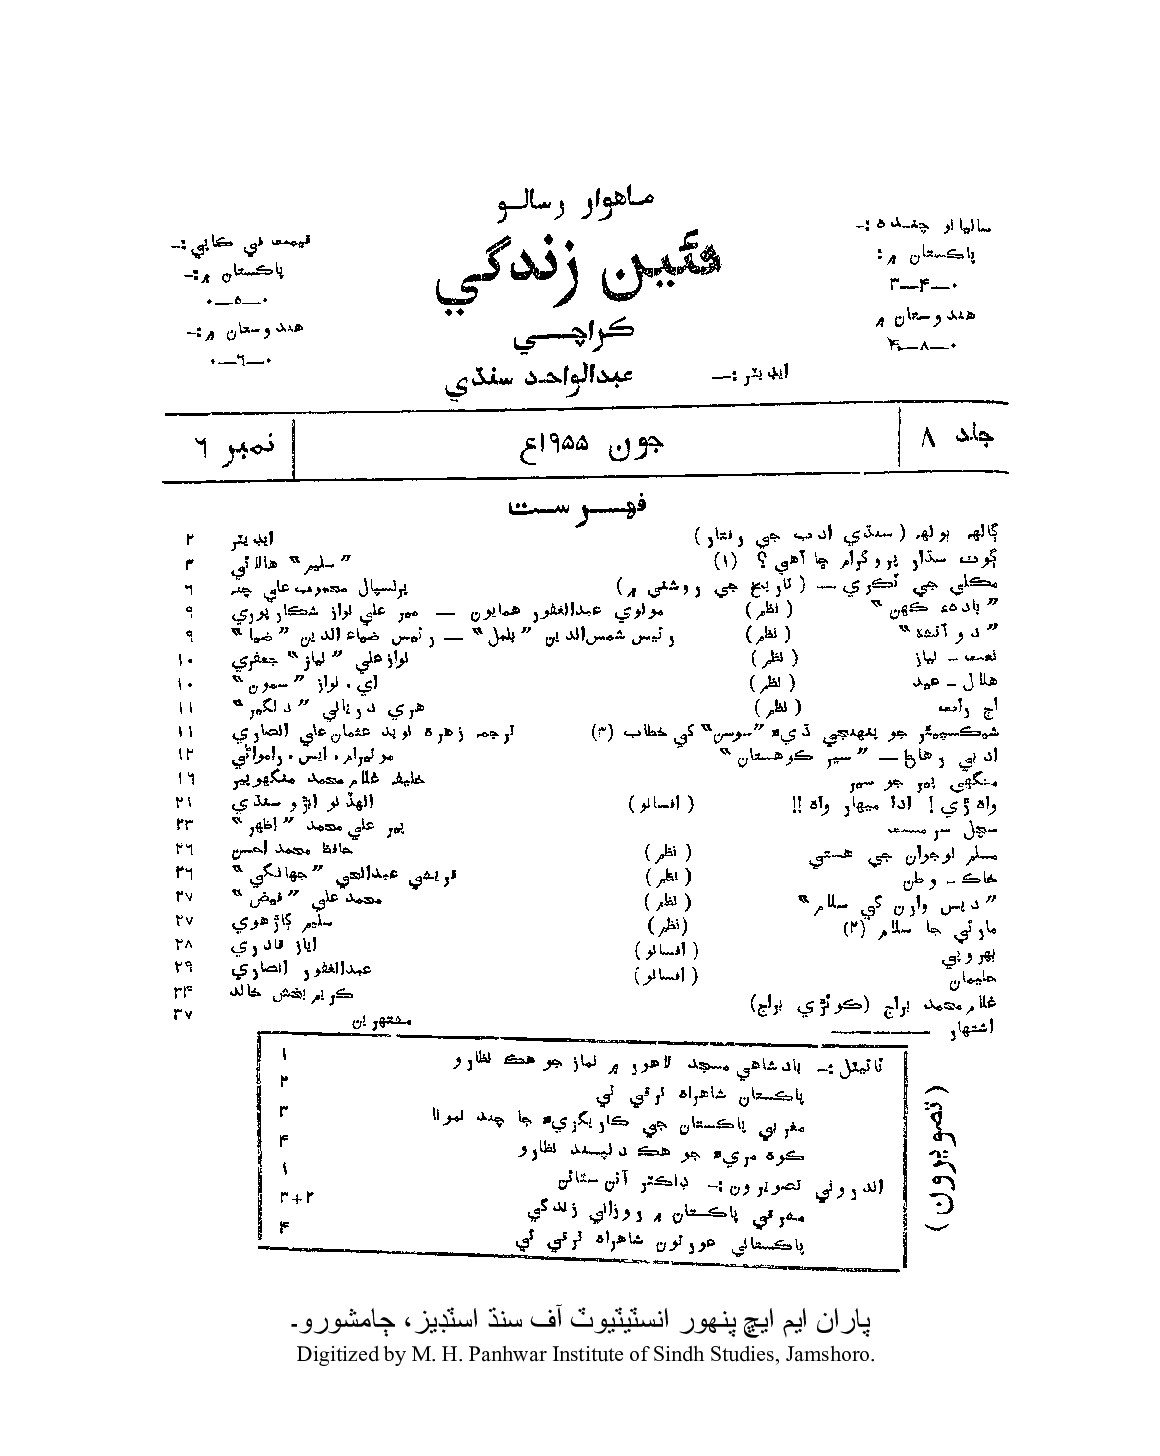 ماهوار رسالو
نئين زندگي
ڪراچي
ساليانو چندہ :—
پاڪستان ۾ :
۳—۴—۰
هندوستان ۾
۴—۸—۰
قيمت في ڪاپي :—
پاڪستان ۾ :—
۰—۵—۰
هندوستان ۾ :—
۰—٦—۰
ايڊيٽر :— عبدالواحد سنڌي
جلد ۸ جون ۱۹۵۵ع نمبر ٦
فهرست
ڳالهہ ٻولهہ (سنڌي ادب جي رفتار) ايڊيٽر ۲
ڳوٺ سڌار پروگرام ڇا آهي؟ (۱) ”سليم“ هالائي ۳
مڪلي جي ٽڪري — (تاريخ جي روشني ۾) پرنسپال محبوب علي چنہ ٦
”بادهء ڪهن“ (نظم) مولوي عبدالغفور همايون — مير علي نواز شڪارپوري ۹
”دو آتشہ“ (نظم) رئيس شمس‌الدين ”بلبل“ — رئيس ضياء الدين ”ضيا“ ۹
نعت - نياز (نظم) نواز علي ”نياز“ جعفري ۱۰
هلال - عيد (نظم) اي. نواز ”سمون“ ۱۰
اڄ رات (نظم) هري درياني ”دلگير“ ۱۱
شيڪسپيئر جو پنهنجي ڌيءَ ”سوسن“ کي خطاب (۳) ترجمہ زهرہ نويد عثمان علي انصاري ۱۱
ادبي رهاڻ — ”سير ڪوهستان“ موتيرام. ايس. رامواڻي ۱۲
منگهي پير جو سير خليفہ غلام محمد منگهو پير ۱٦
واهڙي! ادا ميهار واه!! (افسانو) الهڏنو اٻڙو سنڌي ۲۱
سچل سرمست پير علي محمد ”اظهر“ ۲۳
مسلم نوجوان جي هستي (نظم) حافظ محمد احسن ۲٦
خاڪ - وطن (نظم) قريشي عبدالحي ”جهانگي“ ۲٦
”ديس وارن کي سلام“ (نظم) محمد علي ”فيض“ ۲۷
مارئي جا سلام (۲) (نظم) سليم ڳاڙهوي ۲۷
ٻهروپي (افسانو) اياز قادري ۲۸
حليمان (افسانو) عبدالغفور انصاري ۲۹
غلام محمد براج (ڪوٽڙي براج) ڪريم بخش خالد ۳۴
اشتهار —— مشتهرين ۳۷
(تصويرون)
ٽائيٽل :— بادشاهي مسجد لاهور ۾ نماز جو هڪ نظارو ۱
پاڪستان شاهراه ترقي تي ۲
مغربي پاڪستان جي ڪاريگريءَ جا چند نمونا ۳
ڪوه مريءَ جو هڪ دلپسند نظارو ۴
اندروني تصويرون :— ڊاڪٽر آئن سٽائن ۱
مشرقي پاڪستان ۾ روزاني زندگي ۲+۳
پاڪستاني عورتون شاهراه ترقي تي ۴
پاران ايم ايڇ پنهور انسٽيٽيوٽ آف سنڌ اسٽڊيز، ڄامشورو۔
Digitized by M. H. Panhwar Institute of Sindh Studies, Jamshoro.